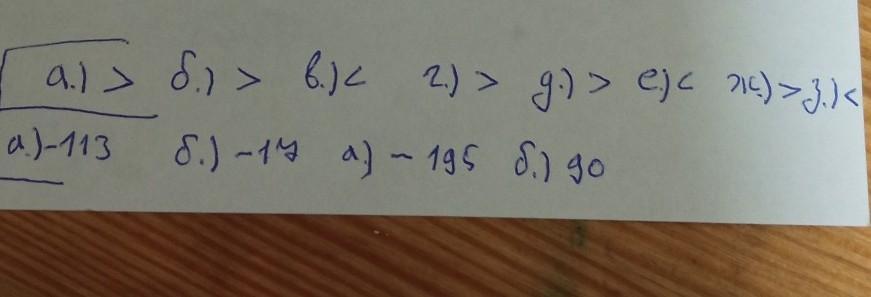 а.) > б.) > в.) < г.) > д.) > е.) < ж.) > з.) <
а.) -113 б.) -17 а.) - 195 б.) 90